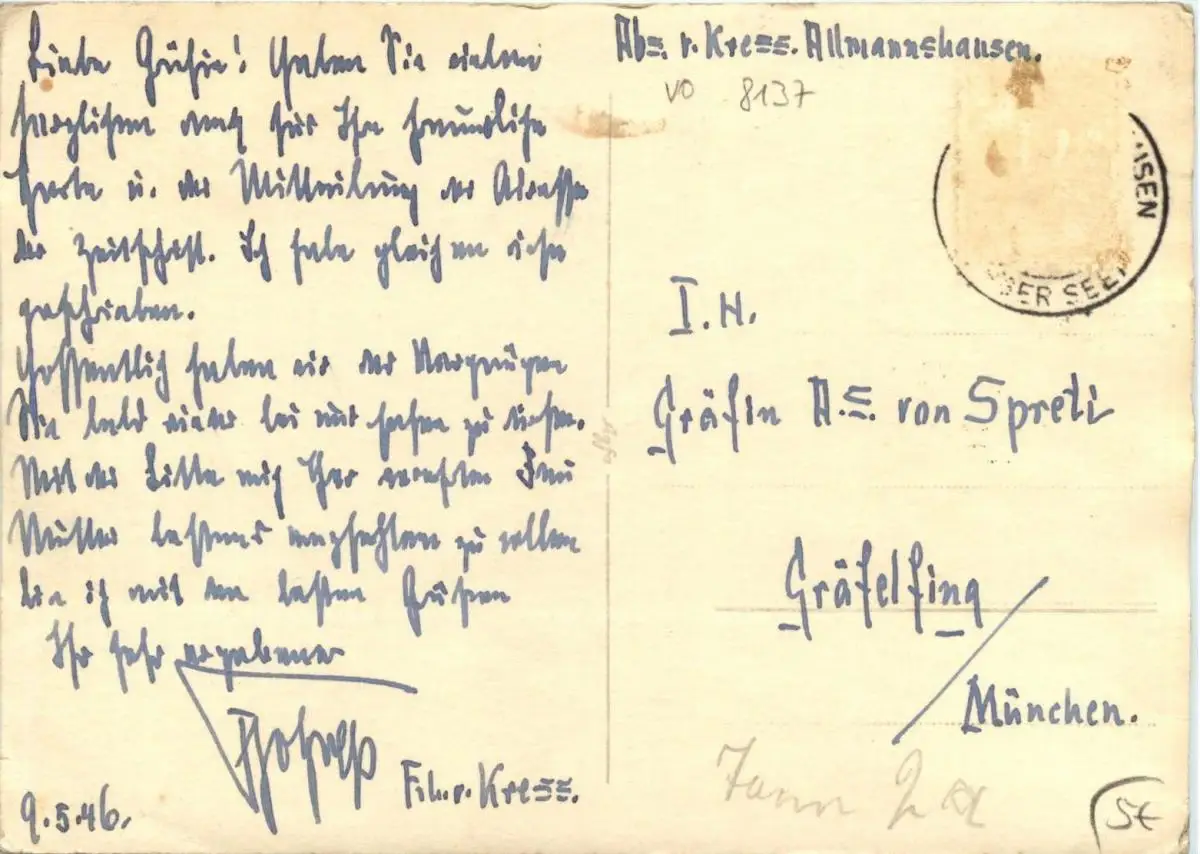 Liebe Gräfin! Haben Sie vielen
herzlichen Dank für Ihre freundliche
Karte u. der Mitteilung der Adresse
der Zeitschrift. Ich habe gleich an diese
geschrieben.
Hoffentlich haben wir das Vergnügen
Sie bald wieder bei uns sehen zu dürfen.
Mit der Bitte mich Ihrer verehrten Frau
Mutter bestens empfehlen zu wollen
bin ich mit den besten Grüßen
Ihr sehr ergebener
Frh. v. Kress.
9.5.46.
Abs. v. Kress. Allmannshausen.
VO 8137
I.H.
Gräfin A.E. von Spreti
Gräfelfing
München.
5€